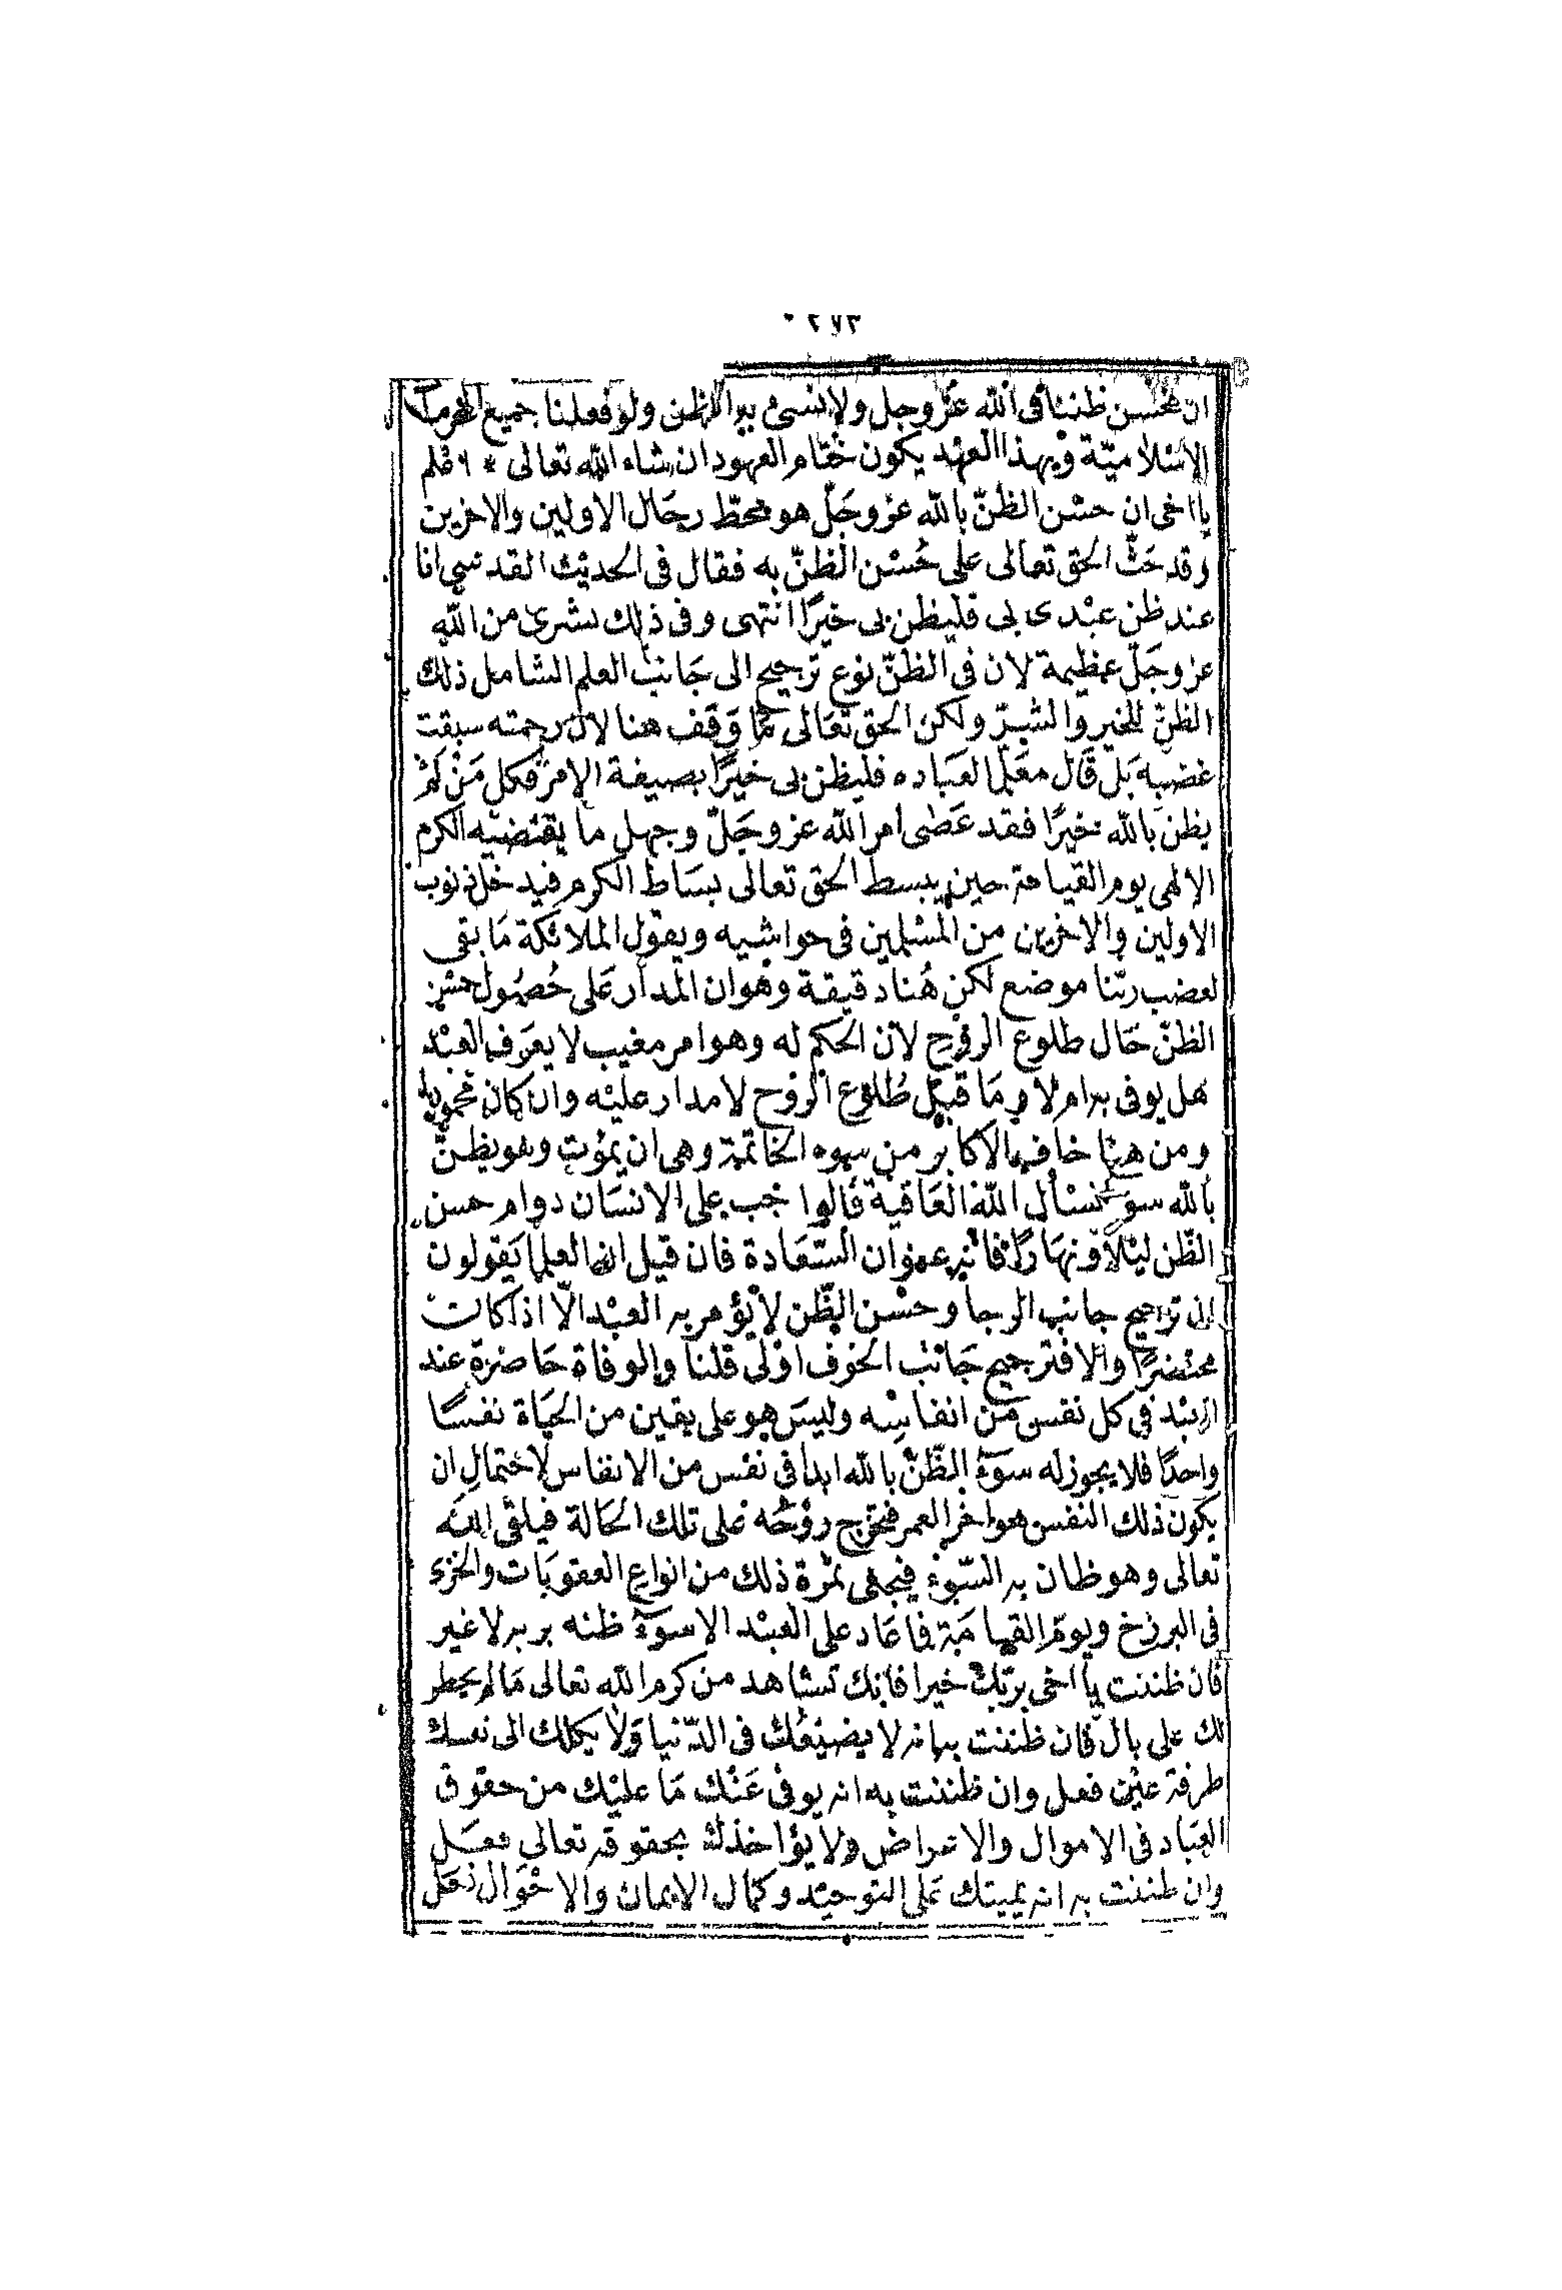 ٢٧٣
ان نحسن ظننا فى الله عز وجل ولا نسئ به الظن ولو فعلنا جميع المحرمات
الاسلامية وبهذا العهد يكون ختام العهود ان شاء الله تعالى * فاعلم
يا اخى ان حسن الظنّ بالله عز وجَلّ هو محطّ رحَال الاولين والاخرين
وقد حَثّ الحق تعالى عَلى حُسْن الظنّ به فقال فى الحديث القدسي انا
عند ظن عبْدى بى فليظن بى خيرًا انتهى وفى ذلك بشرى من الله
عز وجَلّ عظيمة لان فى الظنّ نوع ترجيح الى جَانب العلم الشامل ذلك
الظنّ للخير والشرّ ولكن الحق تعَالى مَا وَقَف هنا لان رحمته سبقت
غضبه بَل قَال معَلما لعبَاده فليظن بى خيرًا بصيغة الامر فكل مَنْ لم
يظن بالله خيرًا فقد عَصَى امر الله عز وجَلّ وجهل ما يقتضيه الكرم
الالهى يوم القيامة حين يبسط الحق تعالى بسَاط الكرم فيدخل ذنوب
الاولين والاخرين من المسْلمين فى حواشيه ويقول الملائكة مَا بقى
لغضب ربّنا موضع لكن هُنا دقيقة وهو ان المدار عَلى حُصُول حسْن
الظنّ حَال طلوع الروُح لان الحكم له وهو امر مغيب لا يعرَف العبْد
هَل يوفى به ام لا ومَا قبْل طُلوع الروُح لا مدار عليْه وان كان محمودا
ومن هنا خاف الاكابر من سوء الخاتمة وهى ان يموُت وهو يظنّ
بالله سوء نسْأل الله العَافية قالوا يجب على الانسَان دوام حسن
الظّن ليْلًا ونهَارًا فانه عنوان السّعَادة فان قيل ان العلما يَقولون
ان ترجيح جانب الرجا وحسْن الظّن لا يؤمر به العبْد الّا اذا كانت
محتضرًا والا فترجيح جَانب الخوف اوْلى قلنا والوفاة حَاضرة عند
العبْد فى كل نفس مَن انفاسِه وليسَ هو على يقين من الحيَاة نفسًا
واحدًا فلا يجوز له سوَء الظّنّ بالله ابدا فى نفس من الانفاس لاحتمال ان
يكون ذلك النفس هو اخر العمر فتخرج روُحُه عَلى تلك الحَالة فيلقى الله
تعالى وهو ظان به السّوء فيجنى ثمرة ذلك من انواع العقوبَات والخزى
فى البرزخ ويومَ القيامَة فا عَاد على العبْد الا سوَء ظنه بربه لا غير
فان ظننت يا اخى بربّك خيرا فانك تشاهد من كرم الله تعالى مَا لم يخطر
لك على بال فان ظننت به انه لا يضيّعُك فى الدّنيا وَلا يكلك الى نفسك
طرفة عيْن فعل وان ظننت به انه يوفى عَنْك مَا عليْك من حقوق
العبَاد فى الاموال والاعراض ولا يؤاخذك بحقوقه تعالى فعَل
وان ظننت به انه يميتك عَلى التوحيْد وكمال الايمان والاحْوَال فعَل